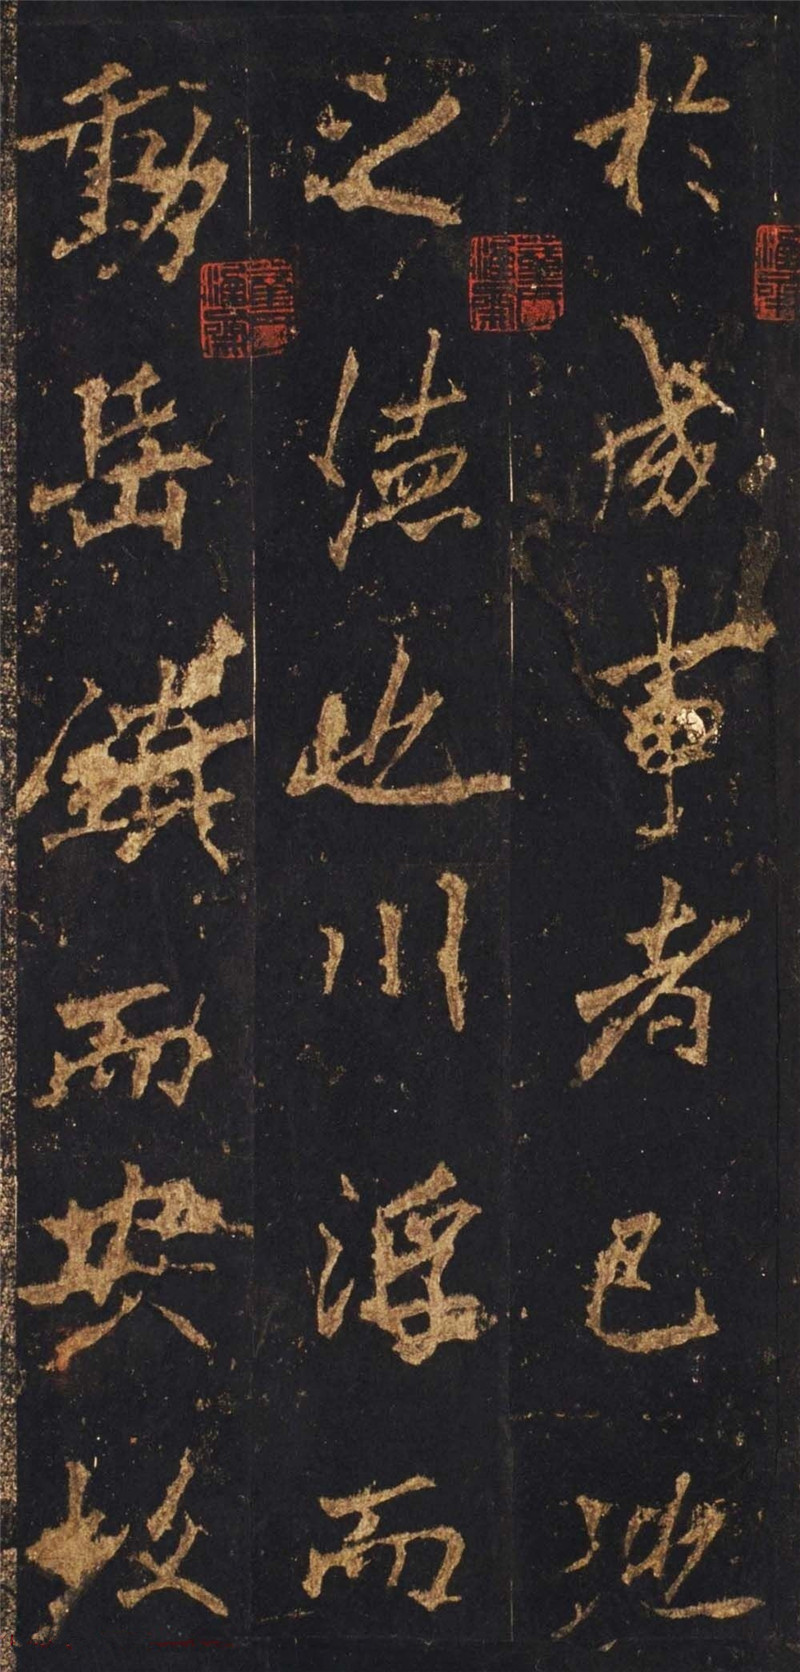 於成事者已地
之德也川浮而
動岳鎮而安故